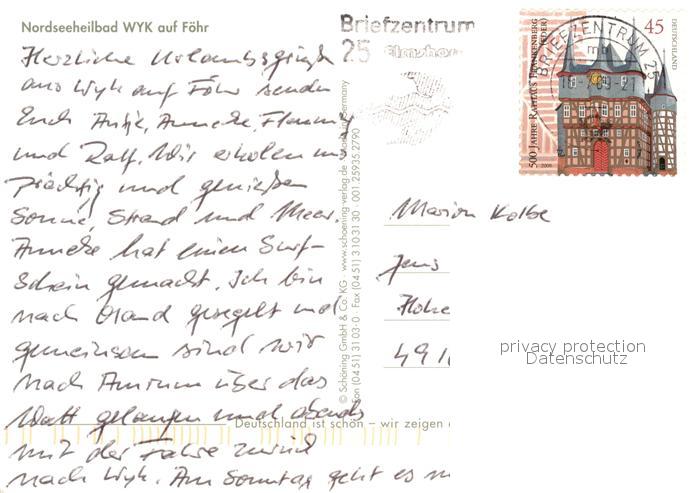 Nordseeheilbad WYK auf Föhr
Herzliche Urlaubsgrüße
aus Wyk auf Föhr senden
Euch Antje, Anneke, Flemming
und Ralf. Wir erholen uns
prächtig und genießen
Sonne, Strand und Meer.
Anneke hat einen Surf-
schein gemacht. Ich bin
nach Oland gesegelt und
gemeinsam sind wir
nach Amrum über das
Watt gelaufen und abends
mit der Fähre zurück
nach Wyk. Am Sonntag geht es n
© Schöning GmbH & Co. KG · www.schoening-verlag.de Germany
Fon (04 51) 31 03-0 · Fax (04 51) 3 10 31 30 · 001 25935.2790
Deutschland ist schön – wir zeigen
Briefzentrum
25 Elmshorn
BRIEFZENTRUM 25
mb
500 JAHRE RATHAUS FRANKENBERG (EDER)
45
DEUTSCHLAND
2009
Marion Kolbe
Jens
Hohe
491
privacy protection
Datenschutz